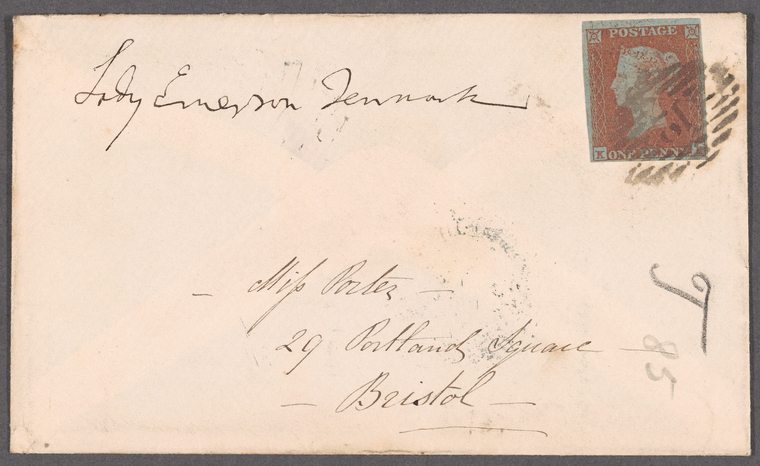 POSTAGE
ONE PENNY
K
Lady Emerson Tennent
– Miss Porter –
29 Portland Square –
– Bristol –
T
85